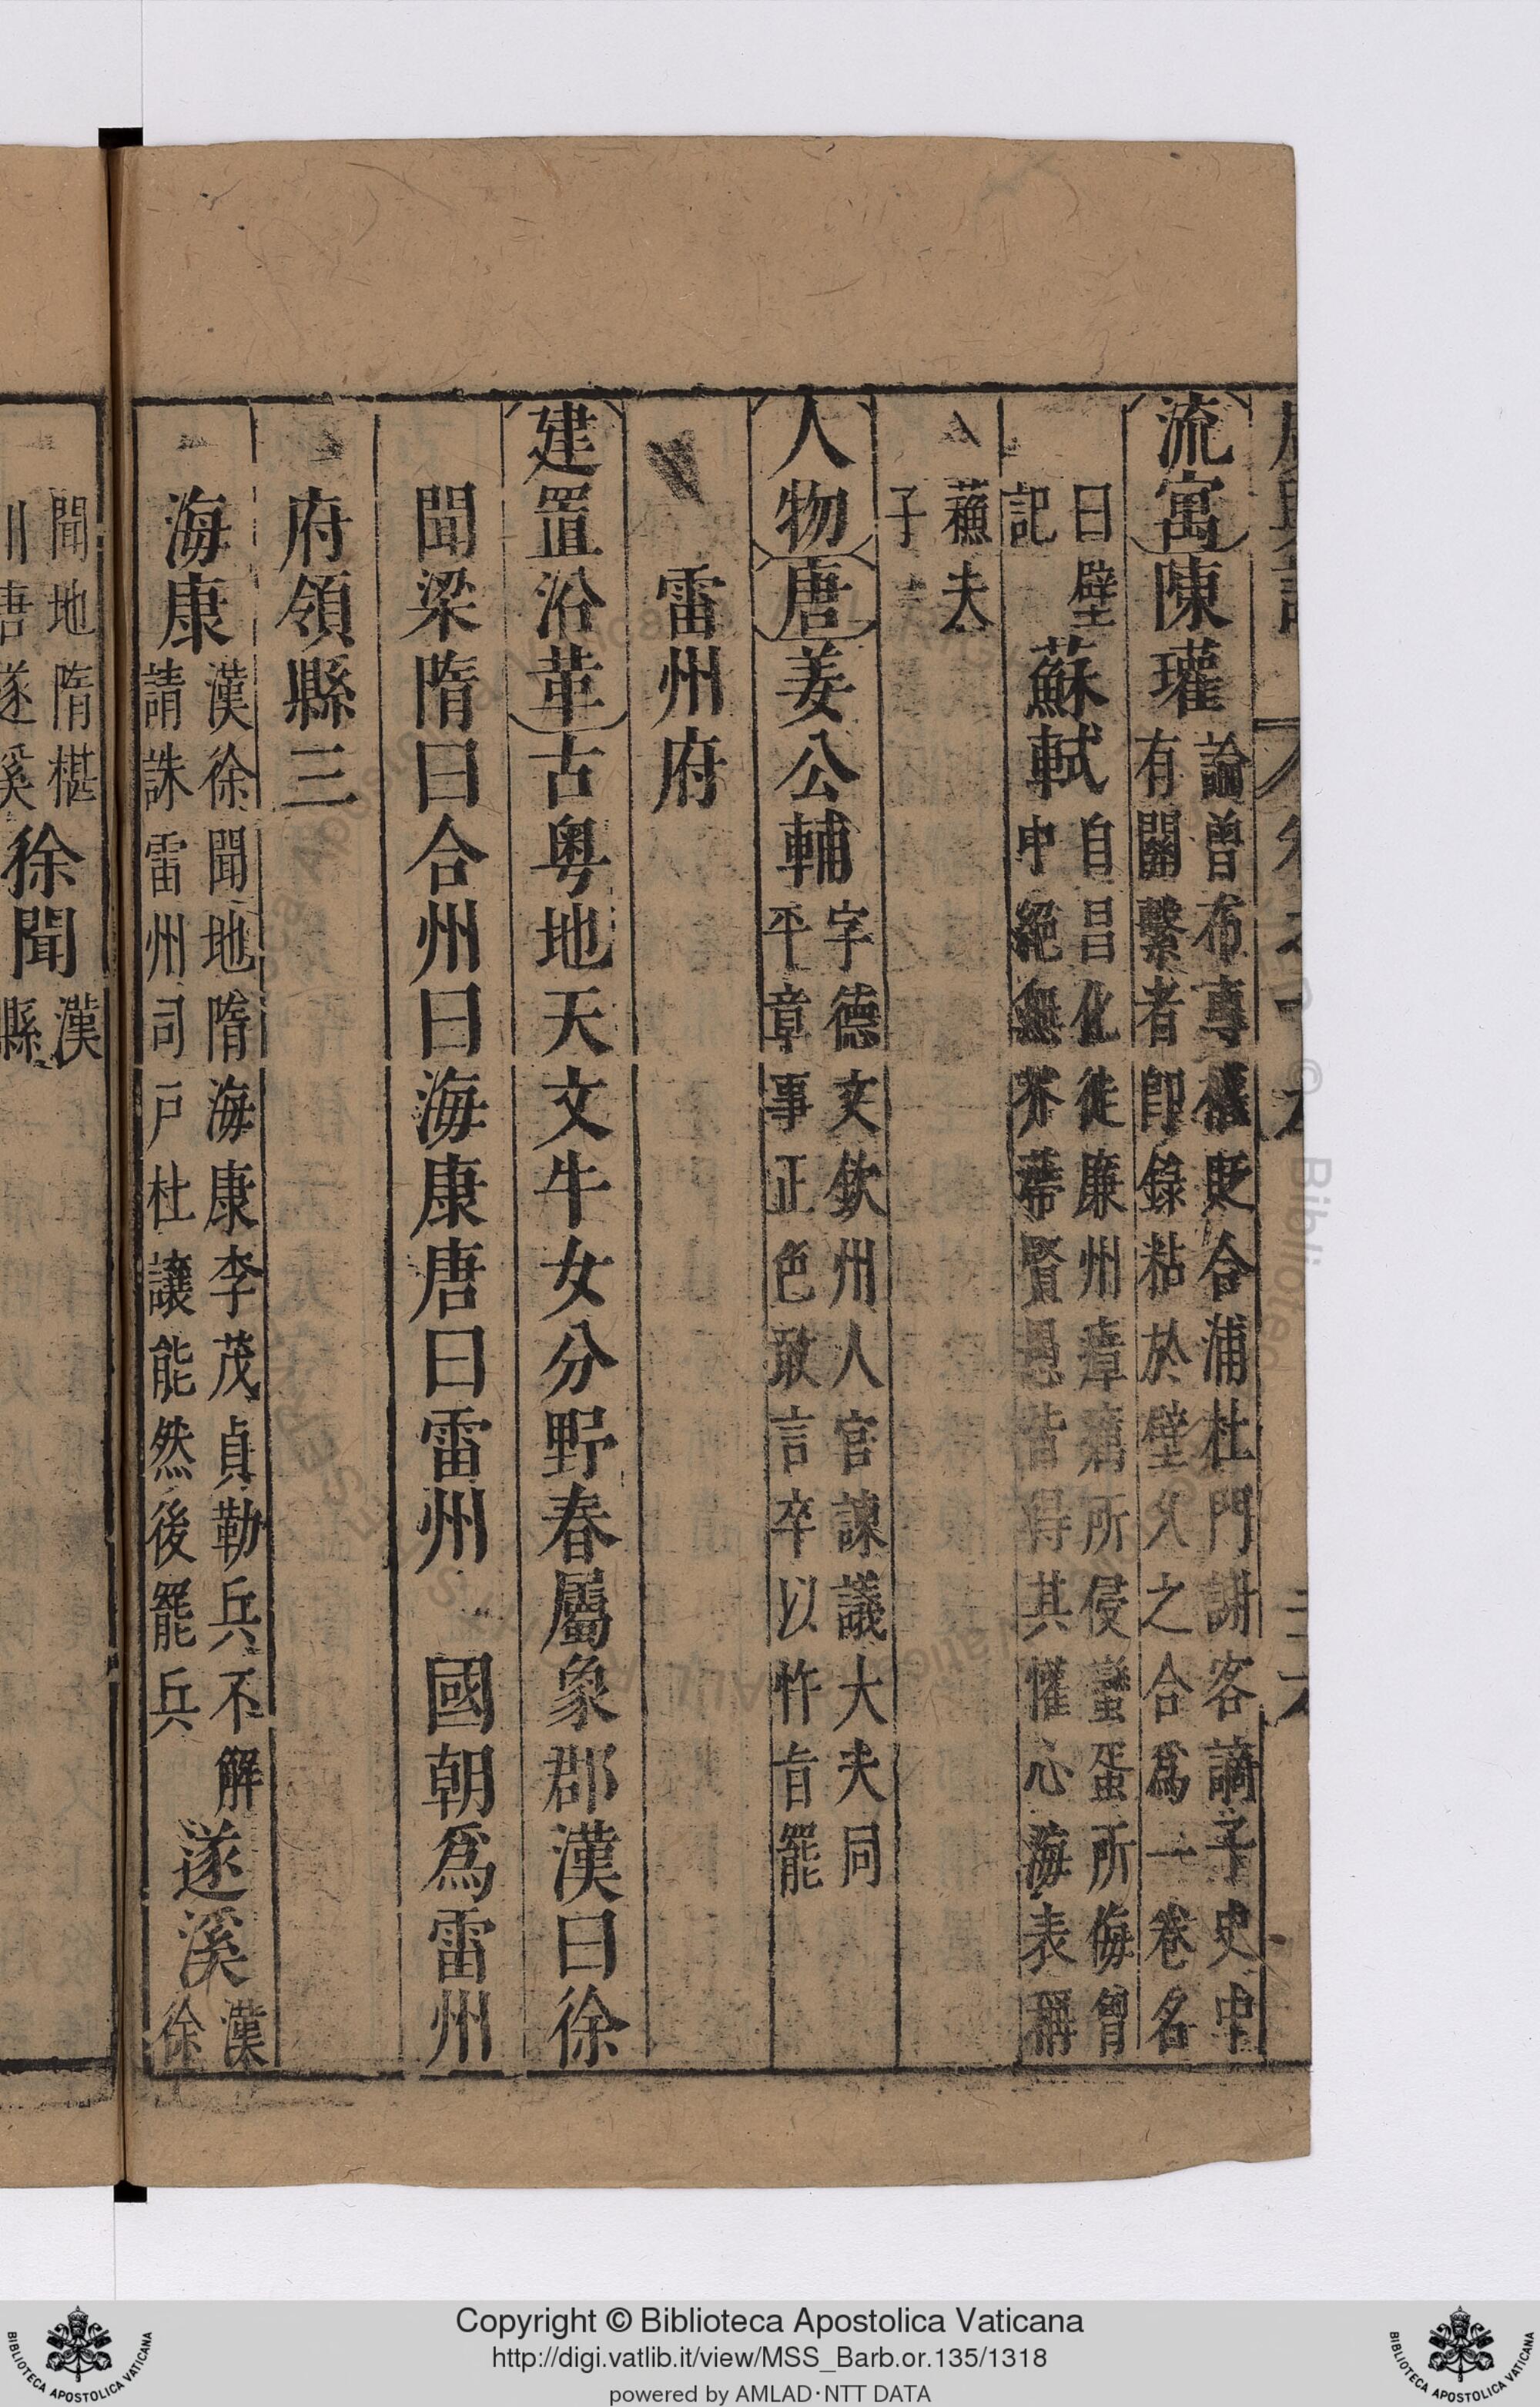 流寓陳瓘論曾布專權貶合浦杜門謝客讀子史中
有關繫者即錄粘於壁久之合爲一卷名
曰壁
記
蘇軾自昌化徙廉州瘴癘所侵蠻蜑所侮曾
中絕無芥蔕賢愚皆得其懽心海表稱
蘓夫
子
人物唐姜公輔字德文欽州人官諫議大夫同
平章事正色敢言卒以忤旨罷
雷州府
建置沿革古粤地天文牛女分野春屬象郡漢曰徐
聞梁隋曰合州曰海康唐曰雷州 國朝爲雷州
府領縣三
海康漢徐聞地隋海康李茂貞勒兵不解
請誅雷州司戸杜讓能然後罷兵
遂溪漢
徐
聞地隋椹
川唐遂溪
徐聞漢
縣
Copyright © Biblioteca Apostolica Vaticana
http://digi.vatlib.it/view/MSS_Barb.or.135/1318
powered by AMLAD·NTT DATA
BIBLIOTECA APOSTOLICA VATICANA
BIBLIOTECA APOSTOLICA VATICANA